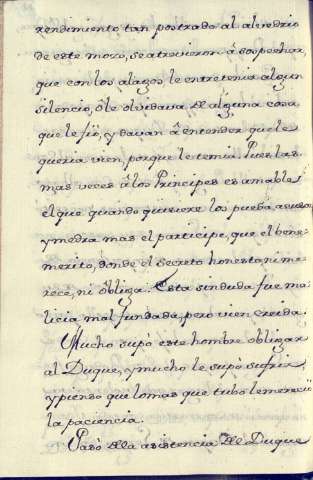 rendimiento tan postrado al alvedrio
de este mozo, se atrevieron â sospechar,
que con los alagos le entretenia algun
silencio, ô le olvidava de alguna cosa
que le fiò, y davan â entender que le
queria vien, porque le temia. Pues las
mas veces â los Principes es amable
el que quando quisiere los pueda acusar
y medra mas el participe, que el bene
merito, donde el secreto honesto, ni me
rece, ni obliga. Esta sin duda fue ma
licia mal fundada, pero vien creida.
Mucho supò este hombre obligar
al Duque, y mucho le supò sufrir,
y pienso que lo mas que tubo le mereciò
la paciencia.
Pasò de la asistencia del Duque